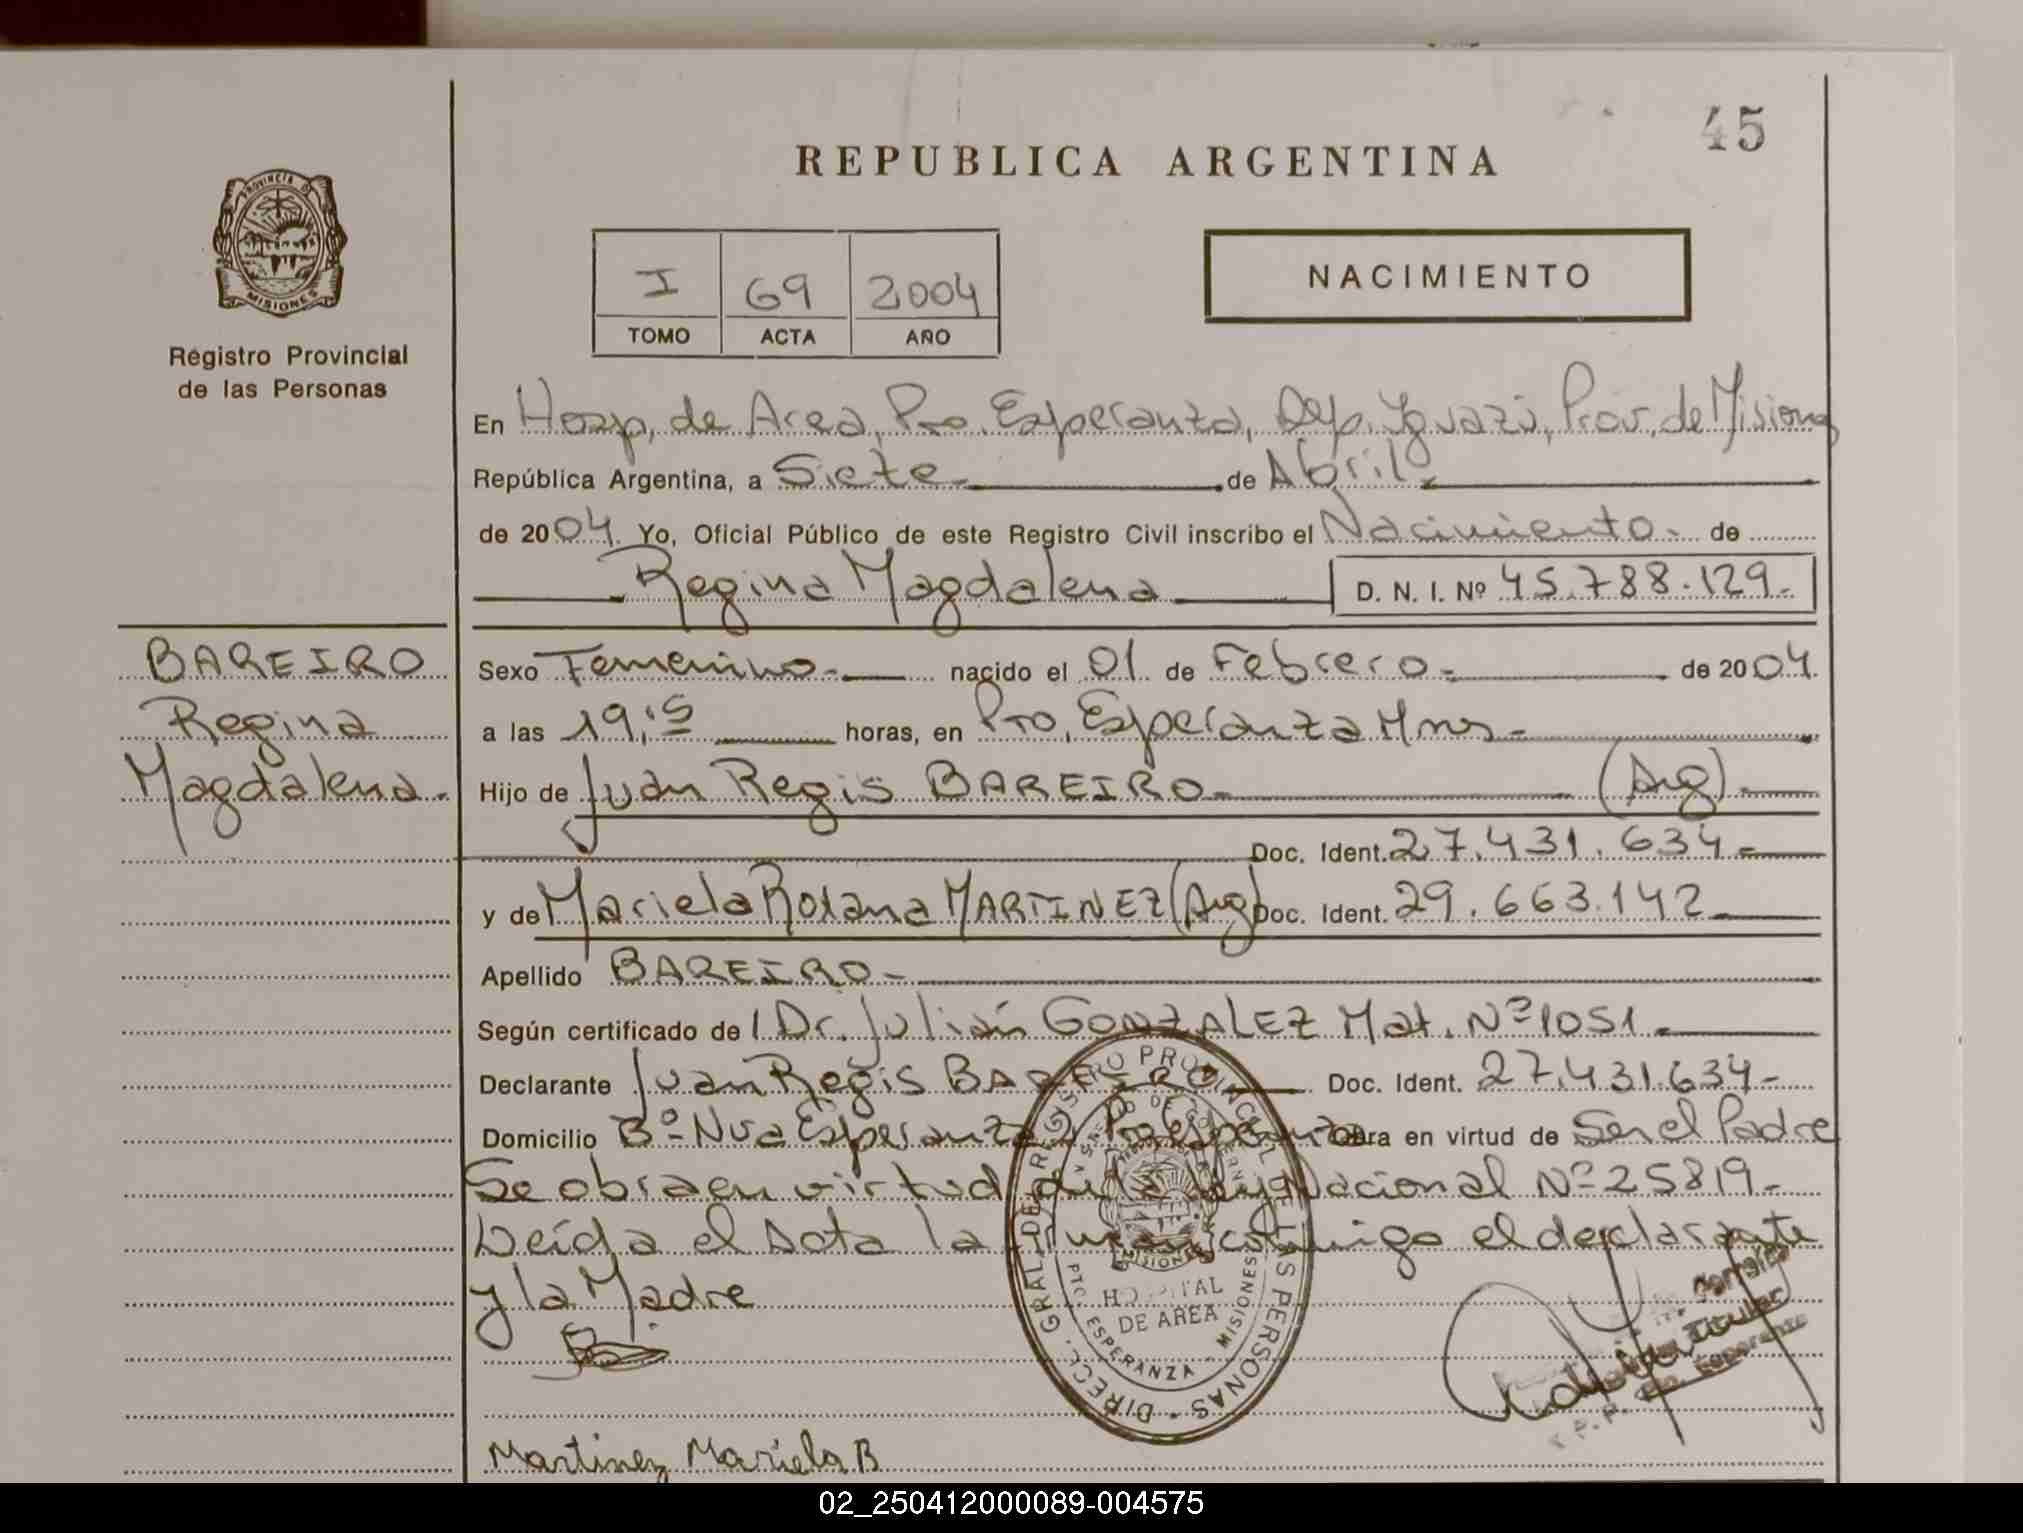 45
REPUBLICA ARGENTINA
PROVINCIA DE
MISIONES
Registro Provincial
de las Personas
I 69 2004
TOMO ACTA AÑO
NACIMIENTO
En Hosp. de Area, Pto. Esperanza, Dep. Yguazú, Prov. de Misiones
República Argentina, a Siete de Abril
de 2004. Yo, Oficial Público de este Registro Civil inscribo el Nacimiento de
Regina Magdalena D. N. I. Nº 45.788.129.-
BAREIRO
Regina
Magdalena.
Sexo Femenino.- nacido el 01 de Febrero.- de 2004.
a las 19:15 horas, en Pto. Esperanza Mnes.-
Hijo de Juan Regis BAREIRO.- (Arg).-
Doc. Ident. 27.431.634.-
y de Mariela Roxana MARTINEZ (Arg) Doc. Ident. 29.663.142.-
Apellido BAREIRO.-
Según certificado de Dr. Julián GONZALEZ Mat. Nº 1051.-
Declarante Juan Regis BAREIRO Doc. Ident. 27.431.634.-
Domicilio Bº Nva Esperanza Pto Esperanza Obra en virtud de Ser el Padre
Se obra en virtud de la Ley Nacional Nº 25819.-
Leída el Acta la firman conmigo el declarante
y la Madre
DIRECC. GRAL. DE REGISTRO PROVINCIAL DE LAS PERSONAS
HOSPITAL
DE AREA
PTO. ESPERANZA - MISIONES
MISIONES
Titular
Pto. Esperanza
Martinez Mariela B
02_250412000089-004575